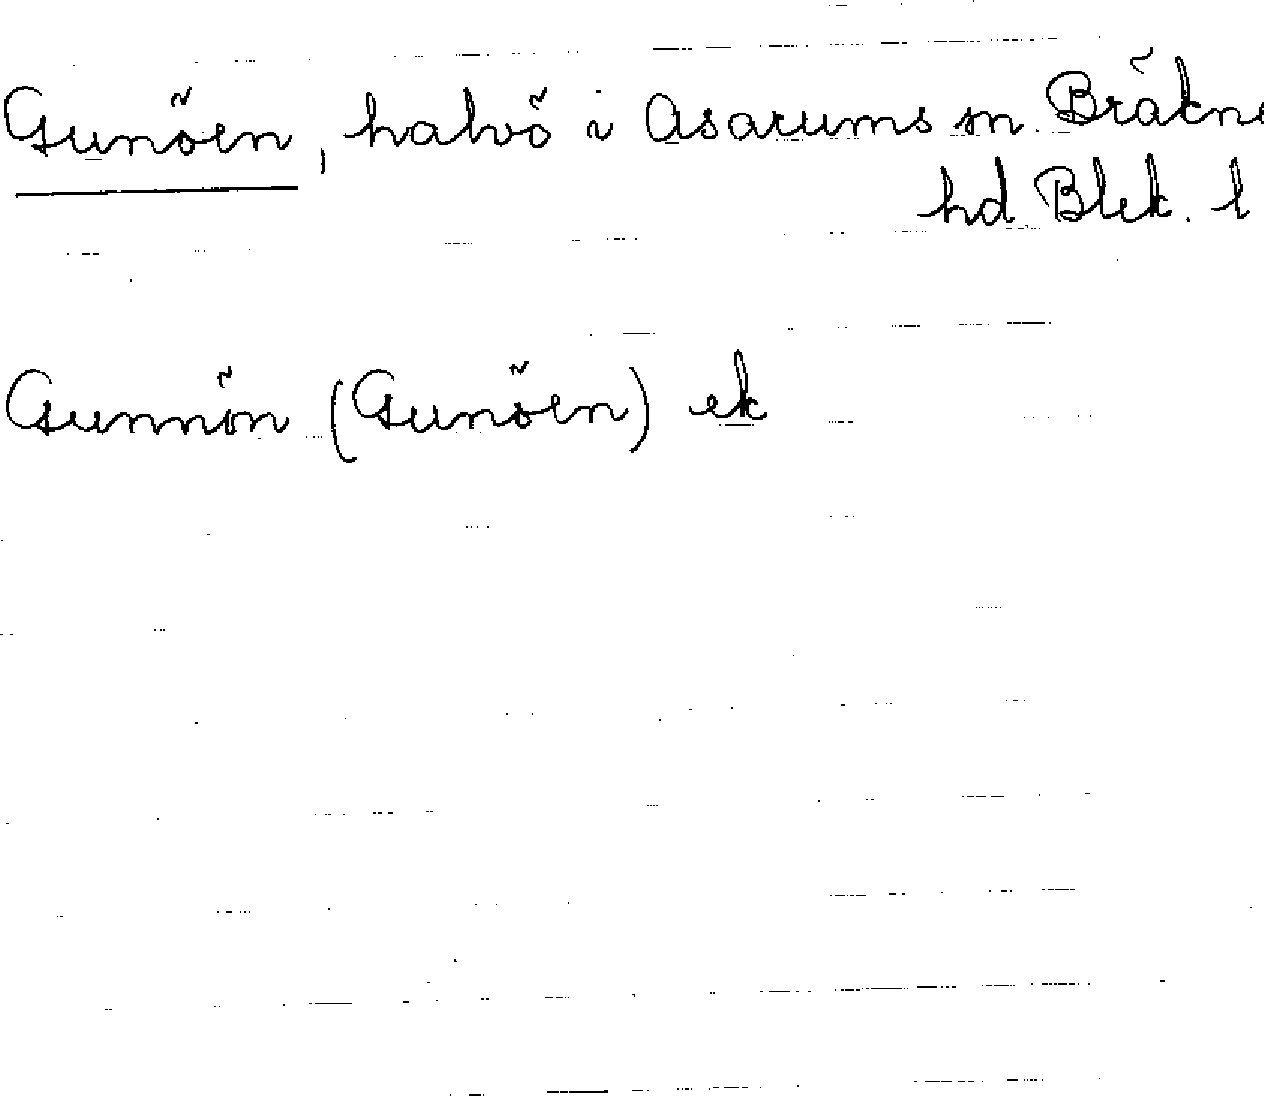 Gunöen, halvö i Asarums sn. Bräkne
hd. Blek. l
Gunnön (Gunöen) ek